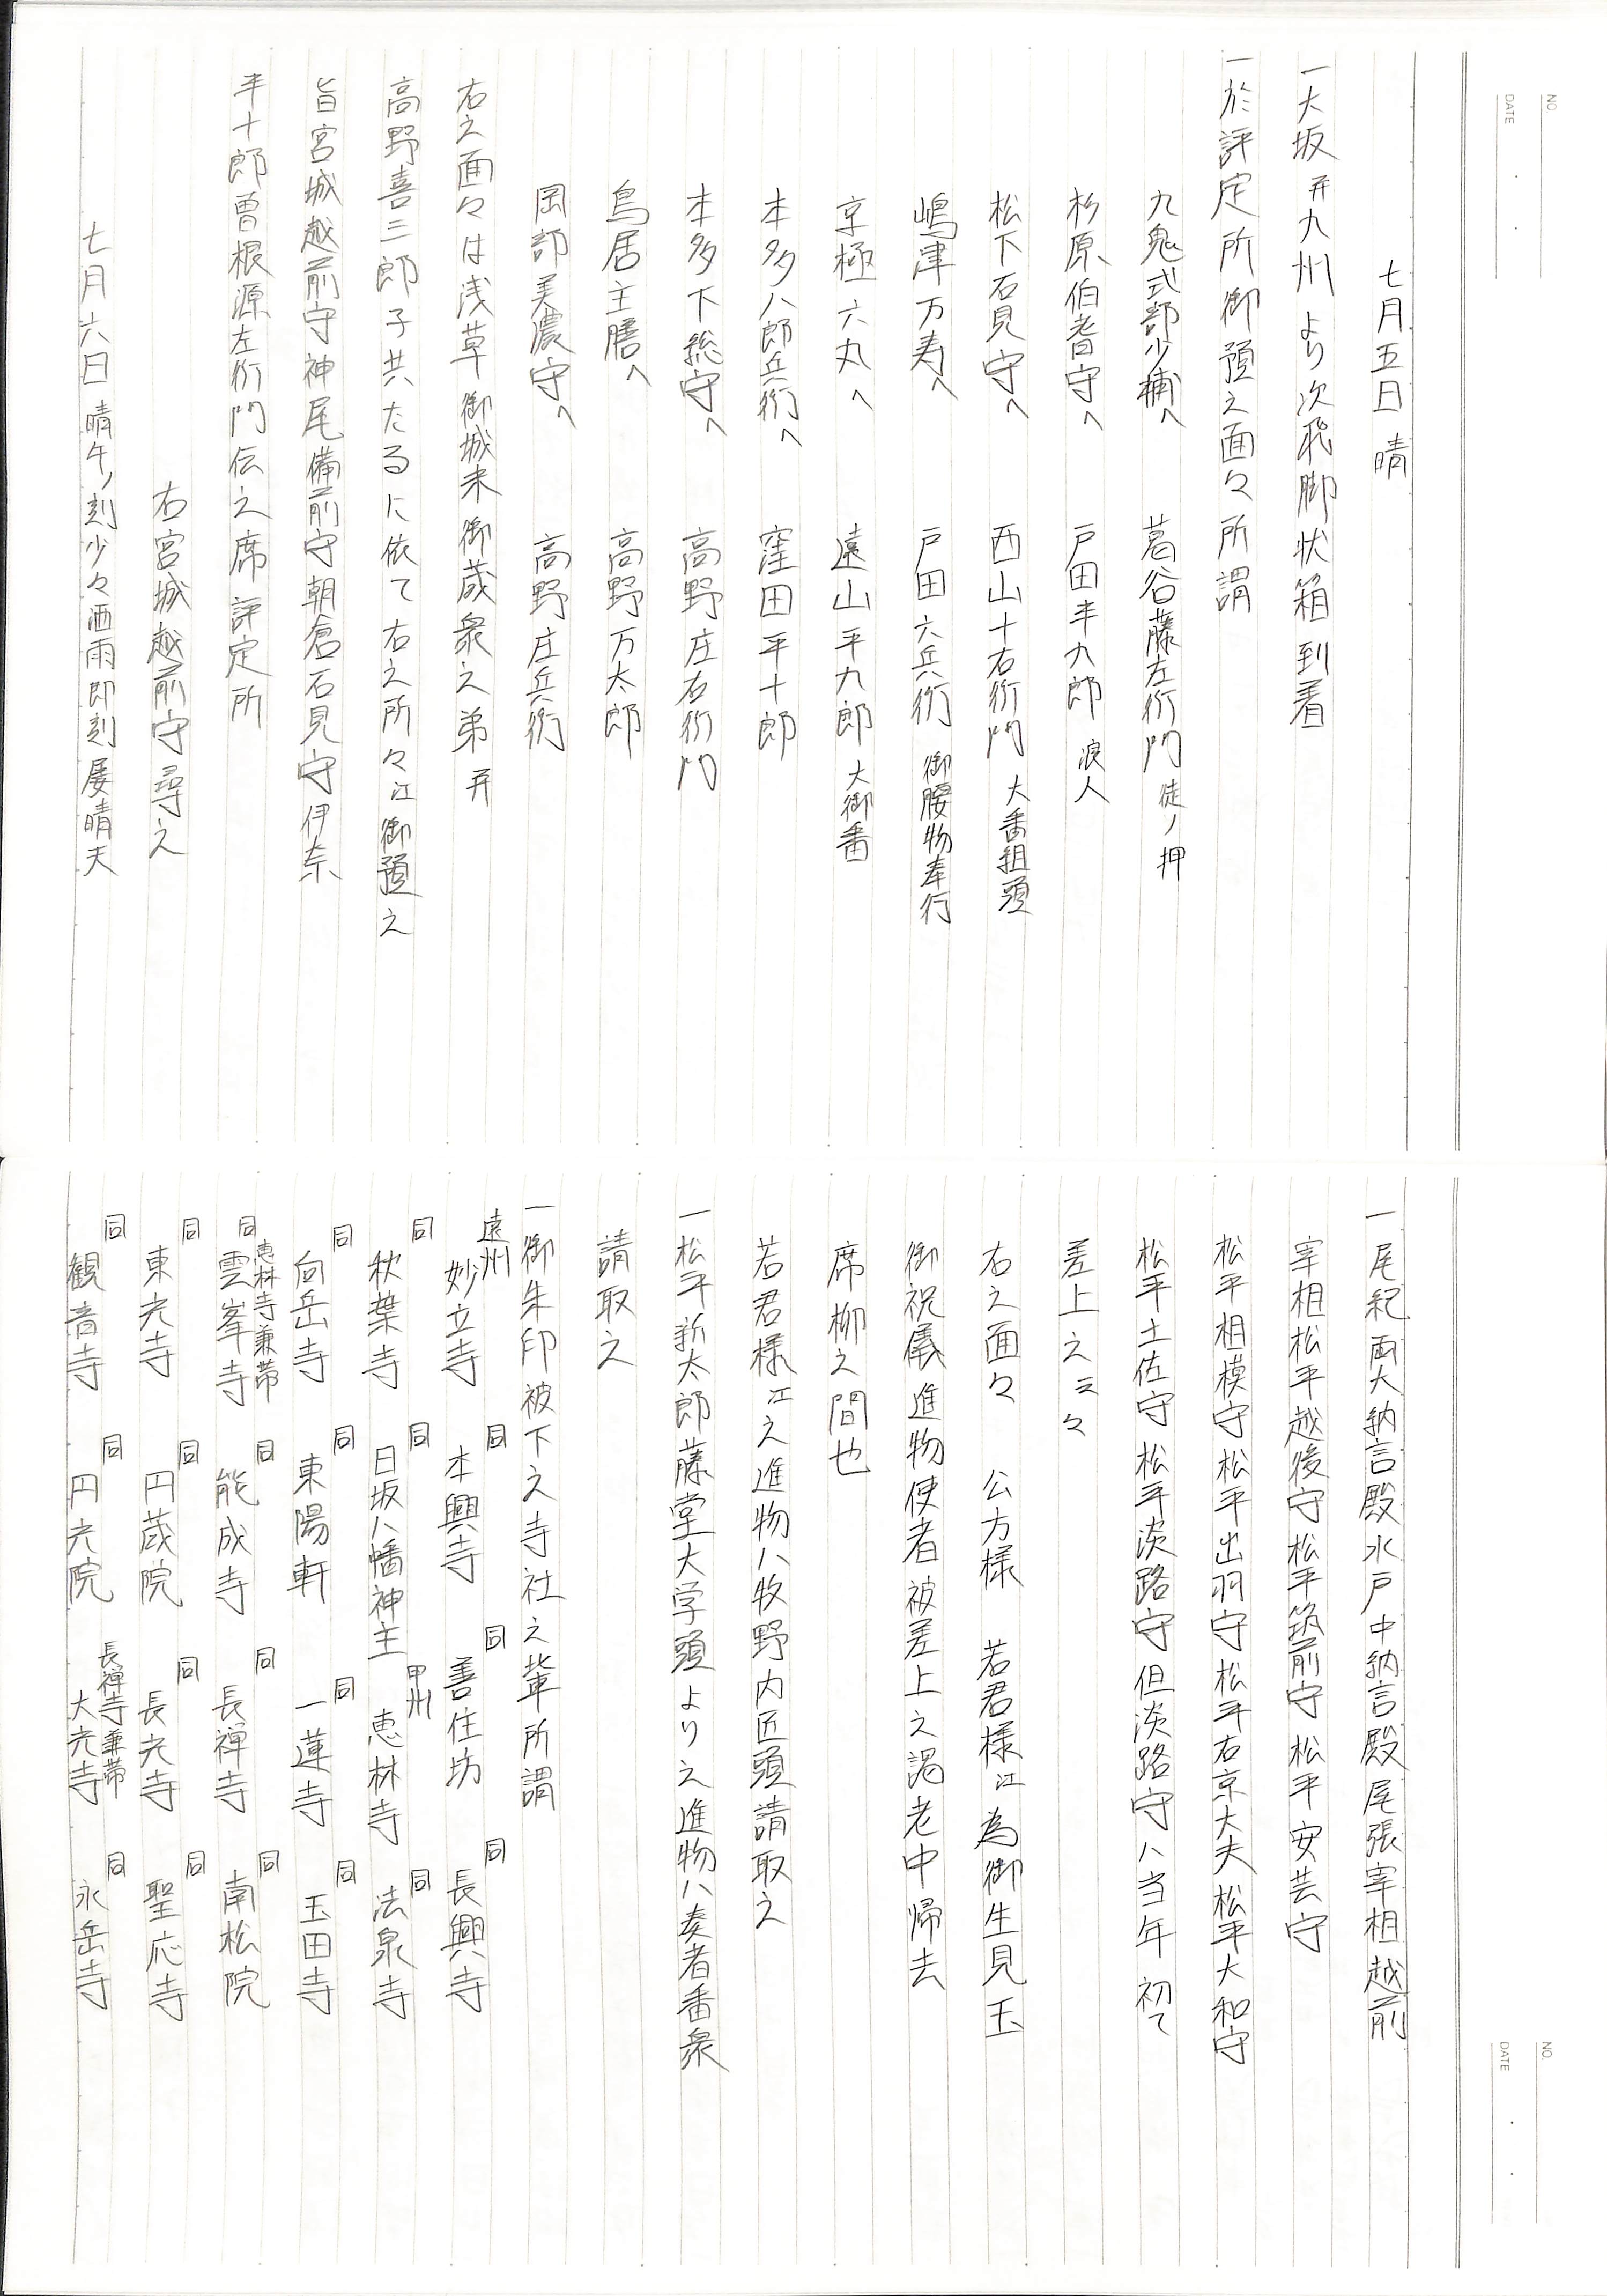 NO.
DATE
七月五日 晴
一大坂并九州より次飛脚状箱到着
一於評定所御預之面々所謂
九鬼式部少輔へ 葛谷藤左衛門 徒ノ押
杉原伯耆守へ 戸田半九郎 浪人
松下石見守へ 西山十右衛門 大番組頭
嶋津万寿へ 戸田六兵衛 御腰物奉行
京極六丸へ 遠山平九郎 大御番
本多八郎兵衛へ 窪田平十郎
本多下総守へ 高野庄右衛門
鳥居主膳へ 高野万太郎
岡部美濃守へ 高野庄兵衛
右之面々は浅草御城米御蔵衆之弟并
高野喜三郎子共たるに依て右之所々江御預之
旨宮城越前守神尾備前守朝倉石見守伊奈
半十郎曽根源左衛門伝之席評定所
右宮城越前守尋之
七月六日 晴午ノ刻少々洒雨即刻屡晴天
NO.
DATE
一尾紀両大納言殿水戸中納言殿尾張宰相越前
宰相松平越後守松平筑前守松平安芸守
松平相模守松平出羽守松平右京大夫松平大和守
松平土佐守松平淡路守但淡路守ハ当年初て
差上之云々
右之面々 公方様 若君様江為御生見玉
御祝儀進物使者被差上之謁老中帰去
席柳之間也
若君様江之進物ハ牧野内匠頭請取之
一松平新太郎藤堂大学頭より之進物ハ奏者番衆
請取之
一御朱印被下之寺社之輩所謂
遠州 妙立寺 同 本興寺 同 善住坊 同 長興寺
同 秋葉寺 同 日坂八幡神主 甲州 恵林寺 同 法泉寺
同 向岳寺 同 東陽軒 同 一蓮寺 同 玉田寺
同 恵林寺兼帯 雲峯寺 同 能成寺 同 長禅寺 同 南松院
同 東光寺 同 円蔵院 同 長光寺 同 聖応寺
同 観音寺 同 円光院 長禅寺兼帯 大光寺 同 永岳寺